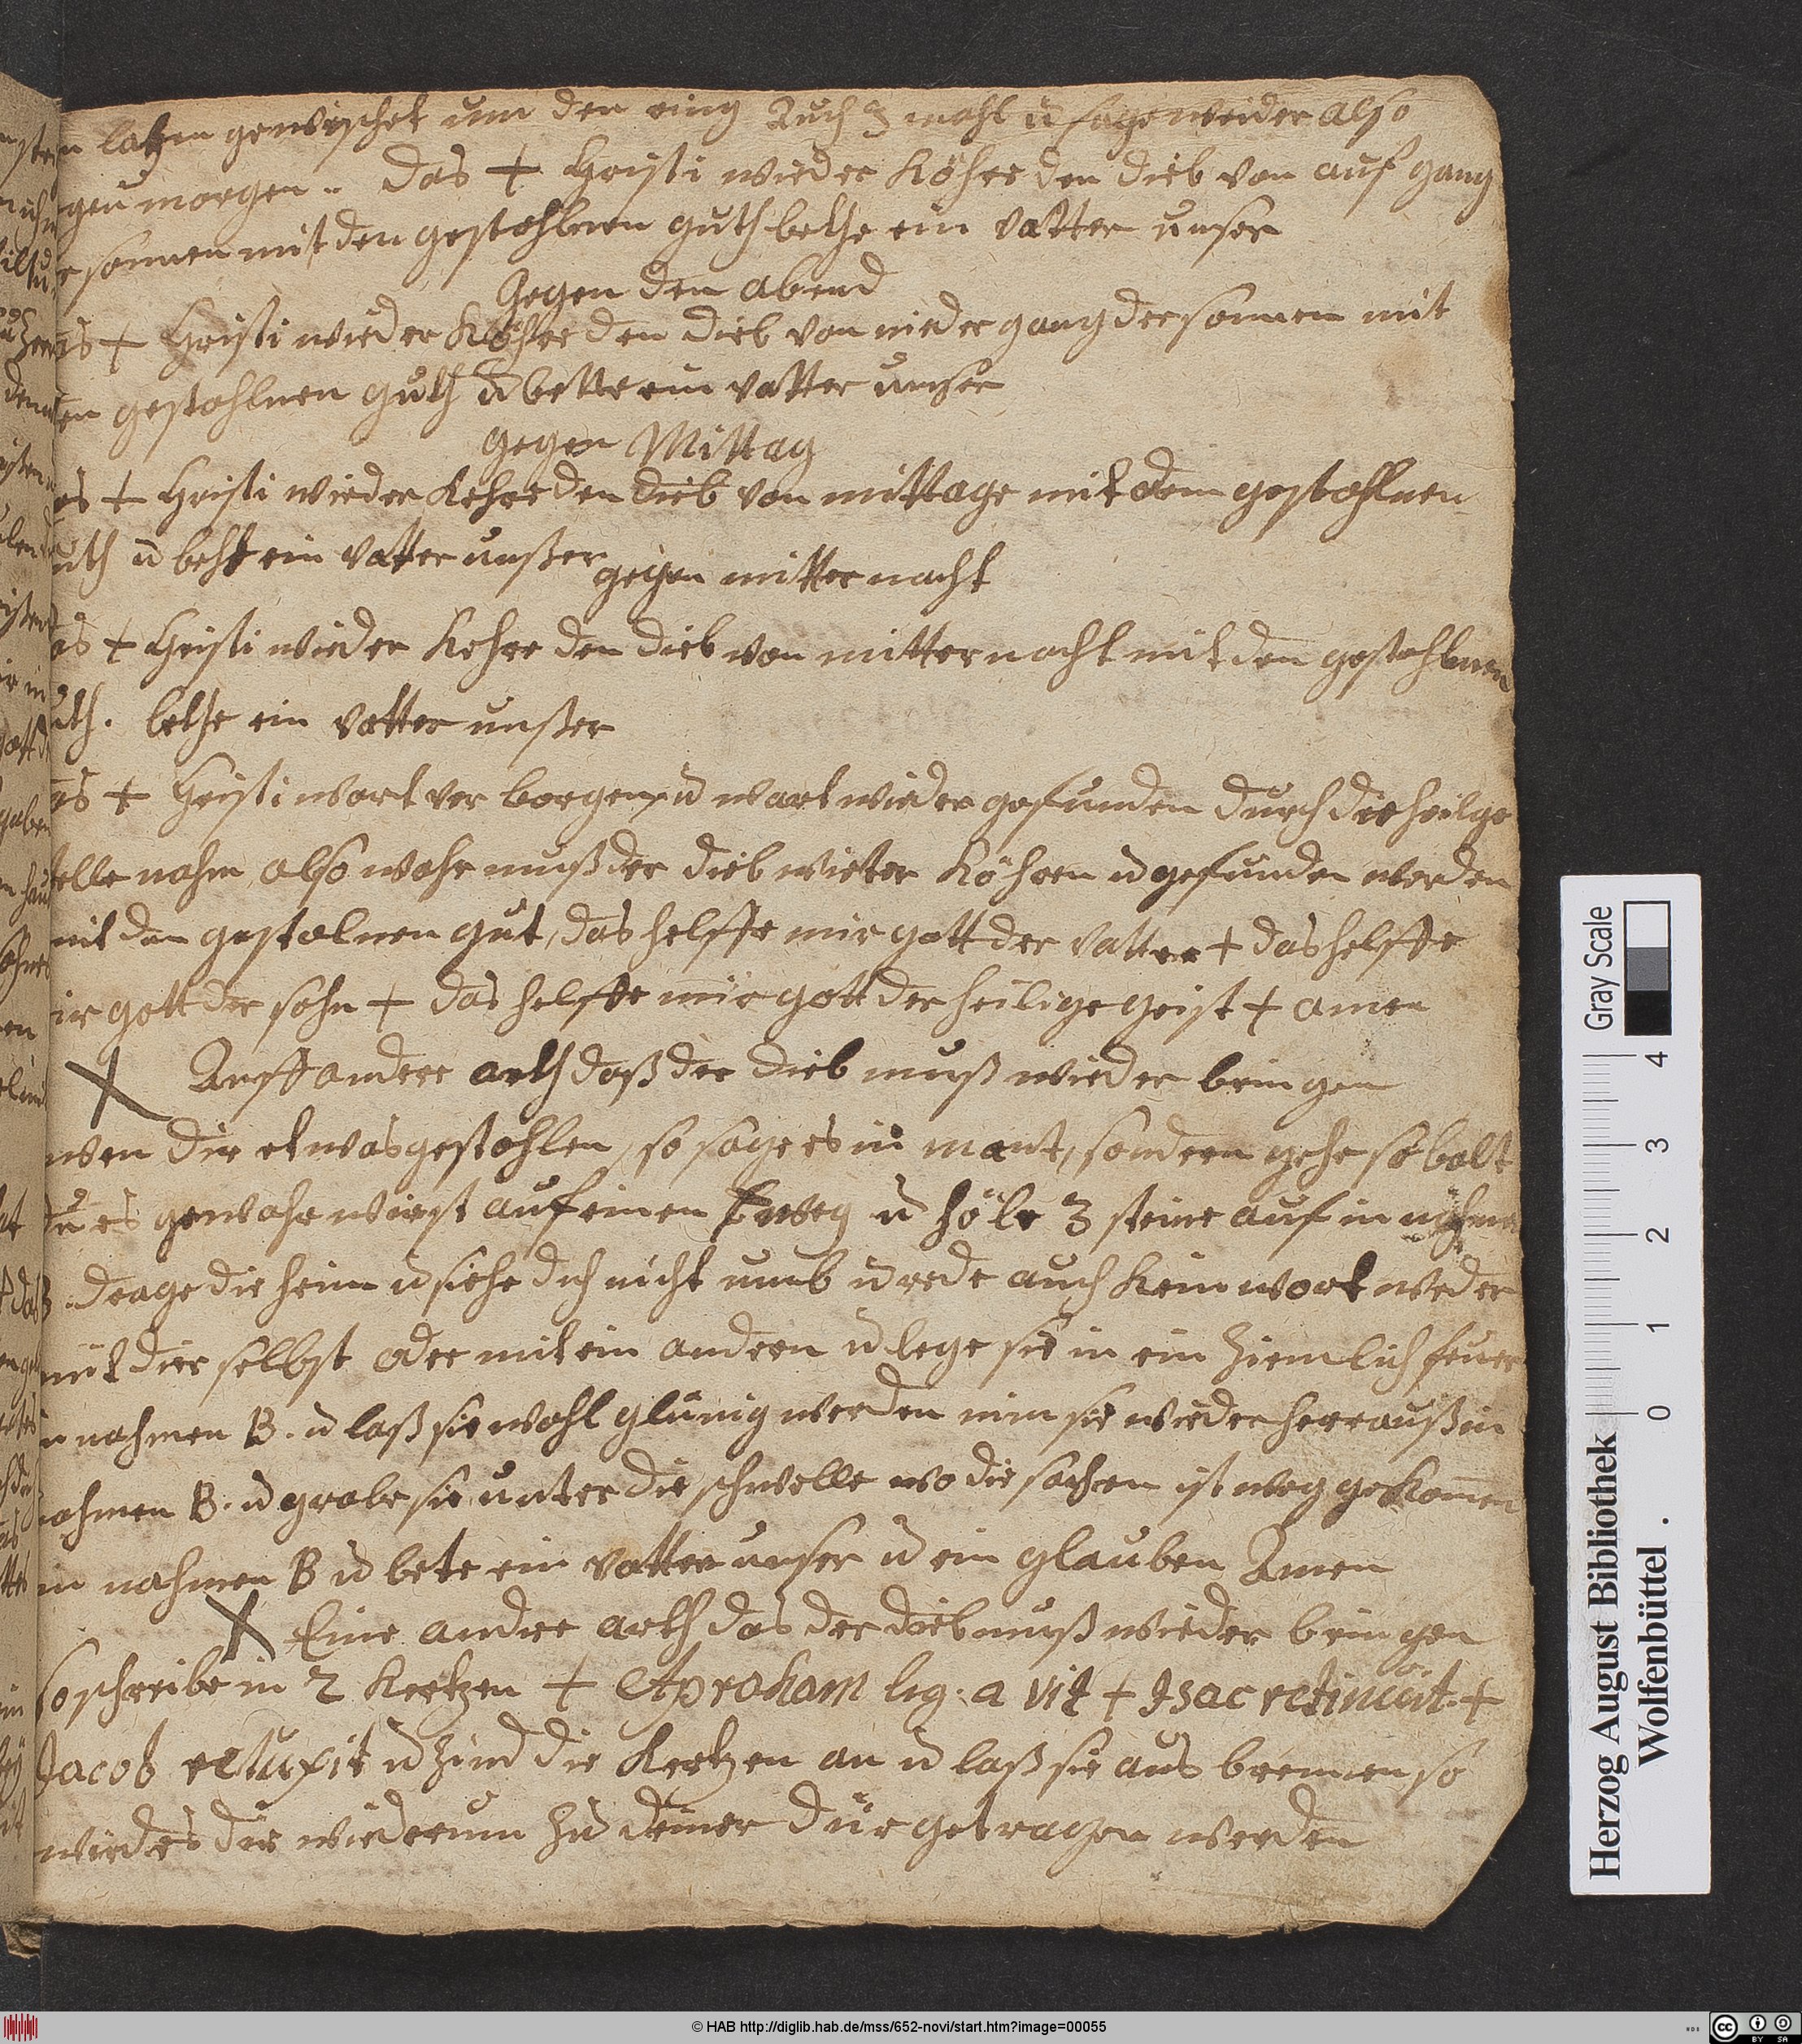 latzen gewischet um den ring Auch 3 mahl ū sage weider also
gen morgen .. Das + Christi wieder Köhre den dieb von auf gang
sonnen mit den gestohlnen guth bethe ein vatter unser
Gegen den abend
+ Christi wieder Köhre den dieb von nieder gang der sonnen mit
en gestohlnen guth ū bette ein vatter unser
gegen Mittag
as + Christi wieder Kehre den dieb von mittage mit dem gestohlnen
uth ū beht ein vatter unßer gegen mitter nacht
as + Christi wieder Kehre den dieb von mitternacht mit den gestohlnen
uth. bethe ein vatter unßer
as + Christi wart ver borgen ū wart wieder gefunden durch die heilge
elle nahm also wahr muß der dieb wieter Köhren ū gefunden werden
mit den gestolnen gut, das helffe mir gott der vatter + das helffe
ir gott der sohn + das helffe mir gott der heilige geist + amen
Auff andere arth daß der dieb muß wieder bringen
wen dir etwas gestohlen, so sage es ni mant, sondern gehe so balt
du es gewahr wirst auf einen weg ū höle 3 steine auf in
drage die heim ū siehe dich nicht umb ū rede auch Kein wort weder
mit dier selbst oder mit ein andern ū lege sie in ein ziemlich feuer
n nahmen B. ū laß sie wohl glunig werden nim sie wieder herrauß in
nahmen B. ū grabe sie unter die schwelle wo die sachen ist weg gekom̄en
in nahmen B ū bete ein vatter unser ū ein glauben Amen
Eine andre arth das der dieb muß wieder bringen
so schreibe in 2 Kertzen + Aproham lig. a vit + Isac +
Jacob ū zünd die Kertzen an ū laß sie aus brennen so
wird es dir wiederum zu deiner dür getragen werden
Gray Scale
4
3
2
1
0
Herzog August Bibliothek
Wolfenbüttel .
© HAB http://diglib.hab.de/mss/652-novi/start.htm?image=00055